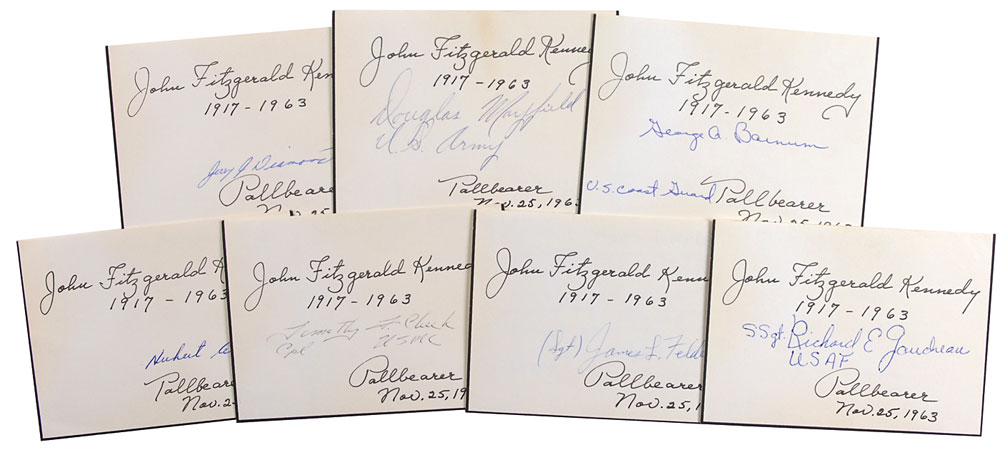 John Fitzgerald Ken
1917 - 1963
Jerry J Diamond
Pallbeare
Nov. 25
John Fitzgerald Kenney
1917 - 1963
Douglas Mayfield
U.S. Army
Pallbearer
Nov. 25, 196
John Fitzgerald Kennedy
1917 - 1963
George A. Barnum
U.S. Coast Guard
Pallbearer
Nov. 25, 1963
John Fitzgerald K
1917 - 1963
Hubert
Pallbear
Nov. 2
John Fitzgerald Kenned
1917 - 1963
Timothy F. Cheek
Cpl USMC
Pallbearer
Nov. 25, 19
John Fitzgerald Kenn
1917 - 1963
(Sgt) James L. Felde
Pallbearer
Nov. 25, 1
John Fitzgerald Kennedy
1917 - 1963
SSgt. Richard E Gaudreau
USAF
Pallbearer
Nov. 25, 1963